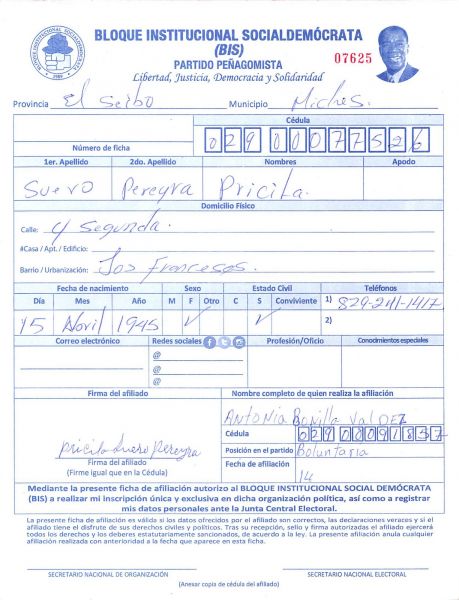 BLOQUE INSTITUCIONAL SOCIALDEMÓCRATA
(BIS)
PARTIDO PEÑAGOMISTA
07625
Libertad, Justicia, Democracia y Solidaridad
Provincia El Seibo Municipio Miches.
Cédula
Número de ficha 029 0007752 6
1er. Apellido 2do. Apellido Nombres Apodo
Suero Pereyra Pricila
Domicilio Físico
Calle: 4 Segunda.
#Casa / Apt. / Edificio:
Barrio / Urbanización: Los Franceses.
Fecha de nacimiento Sexo Estado Civil Teléfonos
Día Mes Año M F Otro C S Conviviente 1) 829-241-1417
15 Abril 1945 2)
Correo electrónico Redes sociales Profesión/Oficio Conocimientos especiales
@
@
@
Firma del afiliado Nombre completo de quien realiza la afiliación
Antonia Bonilla Valdez
Cédula 029 0009185 7
Pricila Suero Pereyra
Posición en el partido Boluntaria
Firma del afiliado
(Firme igual que en la Cédula)
Fecha de afiliación
14
Mediante la presente ficha de afiliación autorizo al BLOQUE INSTITUCIONAL SOCIAL DEMÓCRATA
(BIS) a realizar mi inscripción única y exclusiva en dicha organización política, así como a registrar
mis datos personales ante la Junta Central Electoral.
La presente ficha de afiliación es válida si los datos ofrecidos por el afiliado son correctos, las declaraciones veraces y si el
afiliado tiene el disfrute de sus derechos civiles y políticos. Tras su recepción, sello y firma autorizada el afiliado ejercerá
todos los derechos y los deberes estatutariamente sancionados, de acuerdo a la ley. La presente afiliación anula cualquier
afiliación realizada con anterioridad a la fecha que aparece en esta ficha.
SECRETARIO NACIONAL DE ORGANIZACIÓN SECRETARIO NACIONAL ELECTORAL
(Anexar copia de cédula del afiliado)